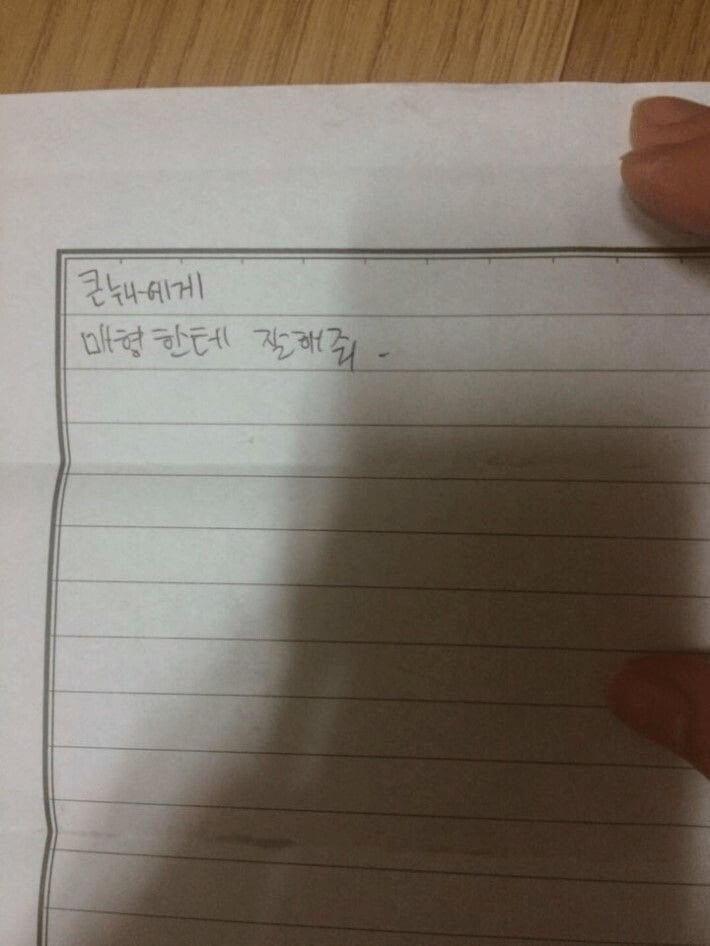 큰누나에게
매형한테 잘해줘.